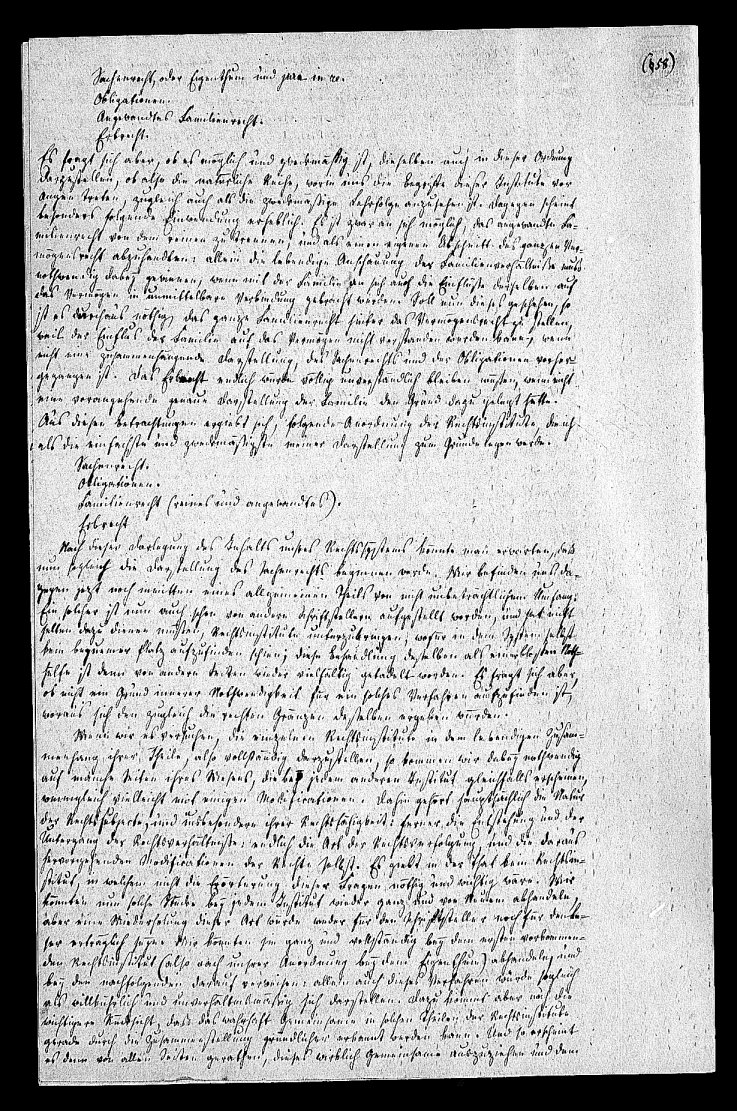 (958)
Sachenrecht, oder Eigenthum und jura in re.
Obligationen.
Angewandtes Familienrecht.
Erbrecht.
Es fragt sich aber, ob es möglich und zweckmäßig ist, dieselben auch in dieser Ordnung
darzustellen, ob also die natürliche Reihe, worin uns die Begriffe dieser Institute vor
Augen treten, zugleich auch als die zweckmäßige Lehrfolge anzusehen ist. Dagegen scheint
besonders folgende Einwendung erheblich. Es ist zwar an sich möglich, das angewandte Fa-
milienrecht von dem reinen zu trennen, und als einen eigenen Abschnitt des ganzen Ver-
mögensrecht abzuhandlen: allein die lebendige Anschauung der Familienverhältniße muß
nothwendig dabey gewinnen, wenn mit der Familie an sich auch die Einflüße derselben auf
das Vermögen in unmittelbare Verbindung gebracht werden. Soll nun dieses geschehen, so
ist es durchaus nöthig, das ganze Familienrecht hinter das Vermögensrecht zu stellen,
weil der Einfluß der Familie auf das Vermögen nicht verstanden werden kann, wenn
nicht eine zusammenhängende Darstellung, des Sachenrechts und der Obligationen vorher-
gegangen ist. Das Erbrecht endlich würde völlig unverständlich bleiben müßen, wenn nicht
eine vorangehende genaue Darstellung der Familie den Grund dazu gelegt hätte.
Aus diesen Betrachtungen ergiebt sich, folgende Anordnung der Rechtsinstitute, die ich
als die einfachste und zweckmäßigste meiner Darstellung zum Grunde legen werde.
Sachenrecht.
Obligationen.
Familienrecht (reines und angewandtes).
Erbrecht
Nach dieser Darlegung des Inhalts unsres Rechtssystems könnte man erwarten, daß
nun sogleich die Darstellung des Sachenrechts beginnen werde. Wir befinden uns da-
gegen jetzt noch mitten eines allgemeinen Theils von nicht unbeträchtlichem Umfang.
Ein solcher ist nun auch schon von andern Schriftstellern aufgestellt worden, und hat nicht
selten dazu dienen müßen, Rechtsinstitute unterzubringen, wofür in dem System selbst
kein bequemer Platz aufzufinden schien; diese Behandlung desselben als einer bloßen Noth-
hülfe ist denn von andern Seiten wieder vielfältig getadelt worden. Es fragt sich aber,
ob nicht ein Grund innerer Nothwendigkeit für ein solches Verfahren aufzufinden ist,
woraus sich denn zugleich die rechten Gränzen desselben ergeben würden.
Wenn wir es versuchen, die einzelnen Rechtsinstitute in dem lebendigen Zusam-
menhang ihrer Theile, also vollständig darzustellen, so kommen wir dabey nothwendig
auf manche Seiten ihres Wesens, die bey jedem anderen Institut gleichfalls erscheinen,
wenngleich vielleicht mit einigen Modificationen. Dahin gehört hauptsächlich die Natur
der Rechtssubjecte, und insbesondere ihrer Rechtsfähigkeit: ferner die Entstehung und der
Untergang der Rechtsverhältniße: endlich die Art der Rechtsverfolgung, und die daraus
hervorgehenden Modificationen der Rechte selbst. Es giebt in der That kein Rechtsin-
stitut, in welchem nicht die Erörterung dieser Fragen nöthig und wichtig wäre. Wir
könnten nun solche Stücke bey jedem Institut wieder ganz und von Neuem abhandeln,
aber eine Wiederholung dieser Art würde weder für den Schriftsteller noch für den Le-
ser erträglich seyn. Wir könnten sie ganz und vollständig bey dem ersten vorkommen-
den Rechtsinstitut (also nach unsrer Anordnung bey dem Eigenthum) abhandeln, und
bey den nachfolgenden darauf verweisen: allein auch dieses Verfahren würde sogleich
als willkührlich und unverhältnißmäßig sich darstellen. Dazu kommt aber noch die
wichtigere Rücksicht, daß das wahrhaft Gemeinsame in solchen Theilen der Rechtsinstitute
gerade durch die Zusammenstellung gründlicher erkannt werden kann. Und so erscheint
es denn von allen Seiten gerathen, dieses wirklich Gemeinsame auszuziehen und dem